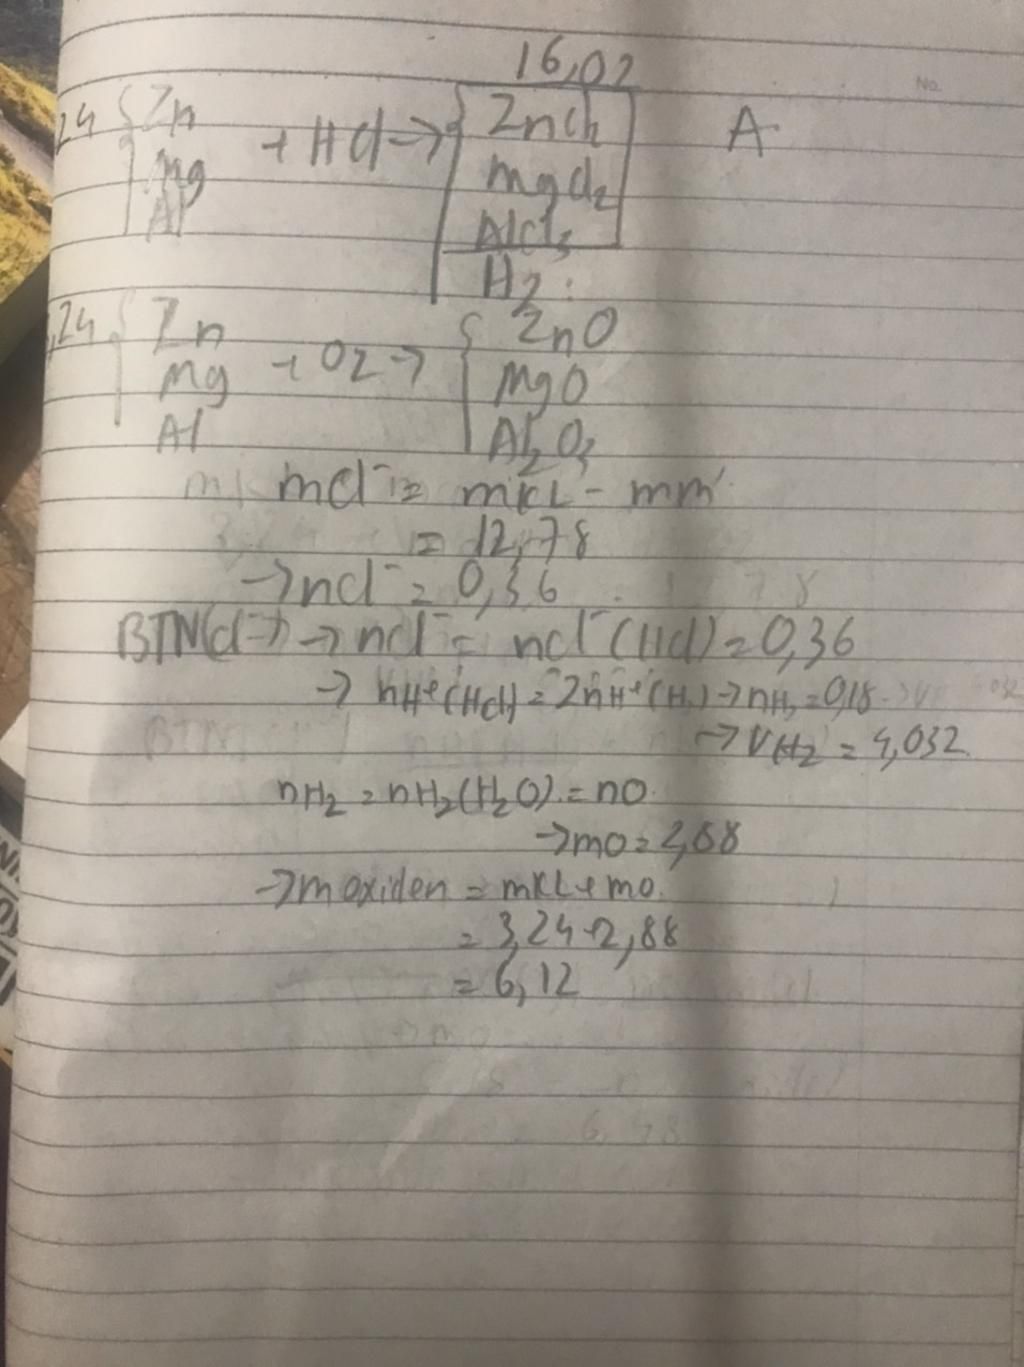 16,02
No.
24 { Zn
Mg
Al
+ HCl → { ZnCl2
MgCl2
AlCl3
H2
A
,24 { Zn
Mg
Al
+ O2 → { ZnO
MgO
Al2O3
mCl⁻ = mKL - mm'
= 12,78
→ nCl⁻ = 0,36
BTNT(Cl⁻) → nCl⁻ = nCl⁻(HCl) = 0,36
→ nH⁺(HCl) = 2nH⁺(H2) → nH2 = 0,18
→ VH2 = 4,032
nH2 = nH2(H2O) = nO
→ mO = 2,88
→ m oxiden = mKL + mO
= 3,24 + 2,88
= 6,12